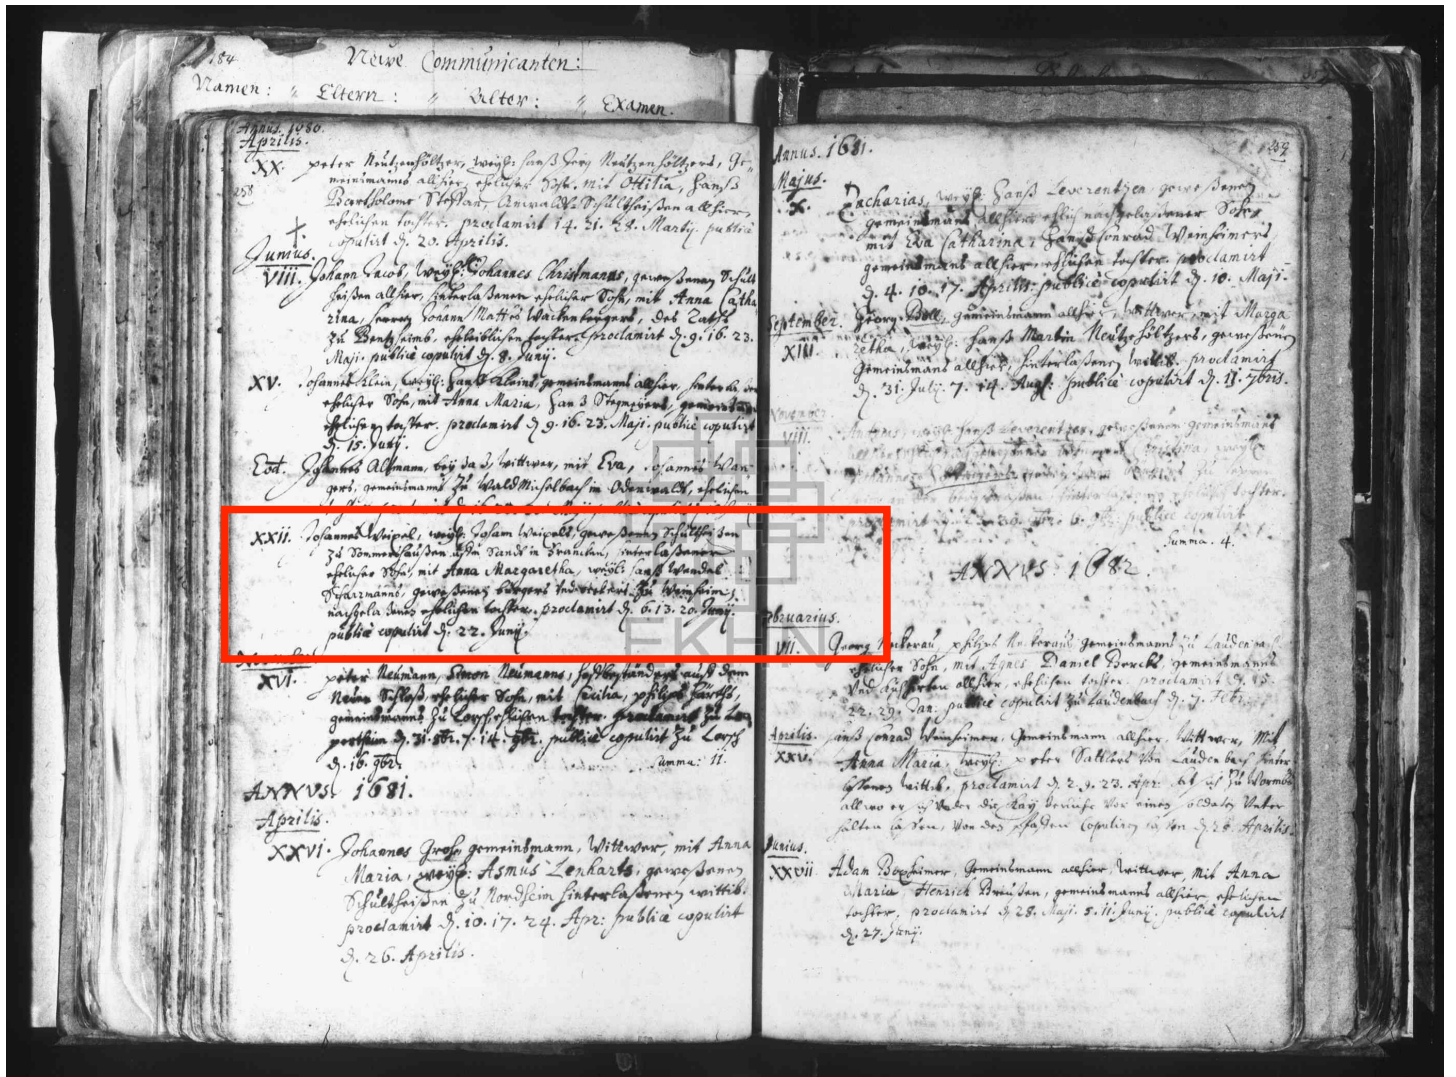 184.
Neüe Communicanten:
Namen: " Eltern: " Alter: " Examen.
Annus. 1680.
Aprilis.
XX. peter Neützenhöltzer, weyl: Hanß Jerg Neützenhöltzers, Ge-
meinsmanns allhier, ehelicher Sohn, mit Ottilia, Hanß
258
Bartholome Stephan, Anwaldt Schultheißen allhier,
ehelichen tochter. proclamirt 14. 21. 28. Martij. publicè
copulirt d. 20. Aprilis.
Junius.
VIII. Johann Jacob, weyl: Johannes Christmanns, geweßenen Schult
heißen allhier, hinterlaßenen ehelicher Sohn, mit Anna Catha
rina, Herren Johann Mattes Wackenbergers, des Raths
zu Bentzheimb, eheleiblichen tochter. proclamirt d. 9. 16. 23.
Maji. publicè copulirt d. 8. Junij.
XV. Johannes Klein, weyl: Hanß Kleins, gemeinsmanns allhier,
ehelicher Sohn, mit Anna Maria, Hanß Stegmeyers,
ehelichen tochter. proclamirt d. 9. 16. 23. Maji. publicè copulirt
d. 15. Junij.
Eod. Johannes Altmann, wittwer, mit Eva, Johannes
gers, gemeinsmanns zu Wald Michelbach in Odenwaldt, ehelichen
XXII. Johannes Weipel, weyl: Johann Weipels, geweßenen Schultheißen
zu Sommershaußen, in Francken, hinterlaßener
ehelicher Sohn, mit Anna Margaretha, weyl: Hanß Wendel
Scharmanns, geweßenen burgers zu Weinheim,
nachgelaßenen ehelichen tochter. proclamirt d. 6. 13. 20. Junij.
publicè copulirt d. 22. Junij.
November
XVI. peter Neümann, Simon Neümanns, Hoffbeständers auff dem
Neüen Schloß, ehelicher Sohn, mit Cicilia, philips
gemeinsmanns zu Lorsch, ehelichen tochter. proclamirt zu Lam
pertheim d. 31. 8br. 7. 14. 9br. publicè copulirt zu Lorsch
d. 16. 9br.
Summa: 11.
ANNVS. 1681.
Aprilis.
XXVI. Johannes Groß, gemeinsmann, Wittwer, mit Anna
Maria, weyl: Asmus Lenharts, geweßenen
Schultheißen zu Nordheim hinterlaßenen wittib.
proclamirt d. 10. 17. 24. Apr: publicè copulirt
d. 26. Aprilis.
259
Annus. 1681.
Majus.
X. Zacharias, weyl: Hanß Leverentzen, geweßenen
gemeinsmanns allhier ehelich nachgelaßener Sohn,
mit Eva Catharina, Hanß Conrad Weinheimers,
gemeinsmans allhier, ehelichen tochter. proclamirt
d. 4. 10. 17. Aprilis. publicè copulirt d. 10. Maji.
September.
XIII. Georg Böll, gemeinsmann allhier, wittwer, mit Marga
retha, weyl: Hanß Martin Neützhöltzers, geweßenen
Gemeinsmans allhier, hinterlaßenen wittib. proclamirt
d. 31. July. 7. 14. Aug: publicè copulirt d. 11. 7bris.
November
VIII. Antonius, weyl: Hanß Leverentzen, geweßenen gemeinsmanns
tochter.
copulirt
Summa. 4.
ANNVS. 1682.
Februarius.
VII. Georg Neckerau, philips Neckeraus gemeinsmanns zu Laudenbach
ehelicher Sohn, mit Agnes Daniel Bercks, gemeinsmanns
allhier, ehelichen tochter. proclamirt d. 15.
22. 29. Jan. publicè copulirt zu Laudenbach d. 7. Febr.
Aprilis.
XXV. Hanß Conrad Weinheimer, Gemeinsmann allhier, Wittwer, mit
Anna Maria, weyl: peter Sattlers von Laudenbach hinter
laßenen wittib, proclamirt d. 2. 9. 23. Apr. zu Wormbs
allwo er sich vor einen soldaten Unter
halten laßen, von den pfaffen copuliren laßen d. 25. Aprilis.
Junius.
XXVII Adam Boxheimer, Gemeinsmann allhier, wittwer, mit Anna
Maria, Henrich gemeinsmanns allhier ehelichen
tochter, proclamirt d. 28. Maji. 5. 11. Junij. publicè copulirt
d. 27. Junij.
EKHN